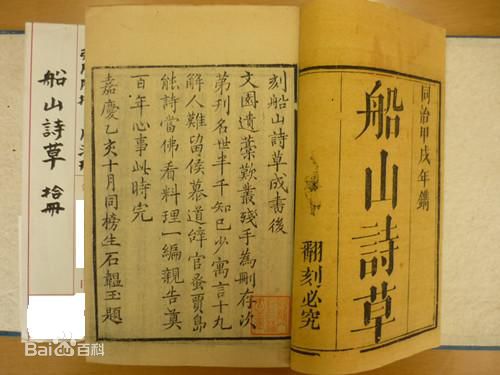 同治甲戌年鐫
船山詩草
翻刻必究
刻船山詩草成書後
文園遺藁歎叢殘手為刪存次
第刊名世半千知己少寓言十九
解人難留侯慕道辤官蚤賈島
能詩當佛看料理一編親告奠
百年心事此時完
嘉慶乙亥十月同榜生石韞玉題
船山詩草 拾冊
Bai百科